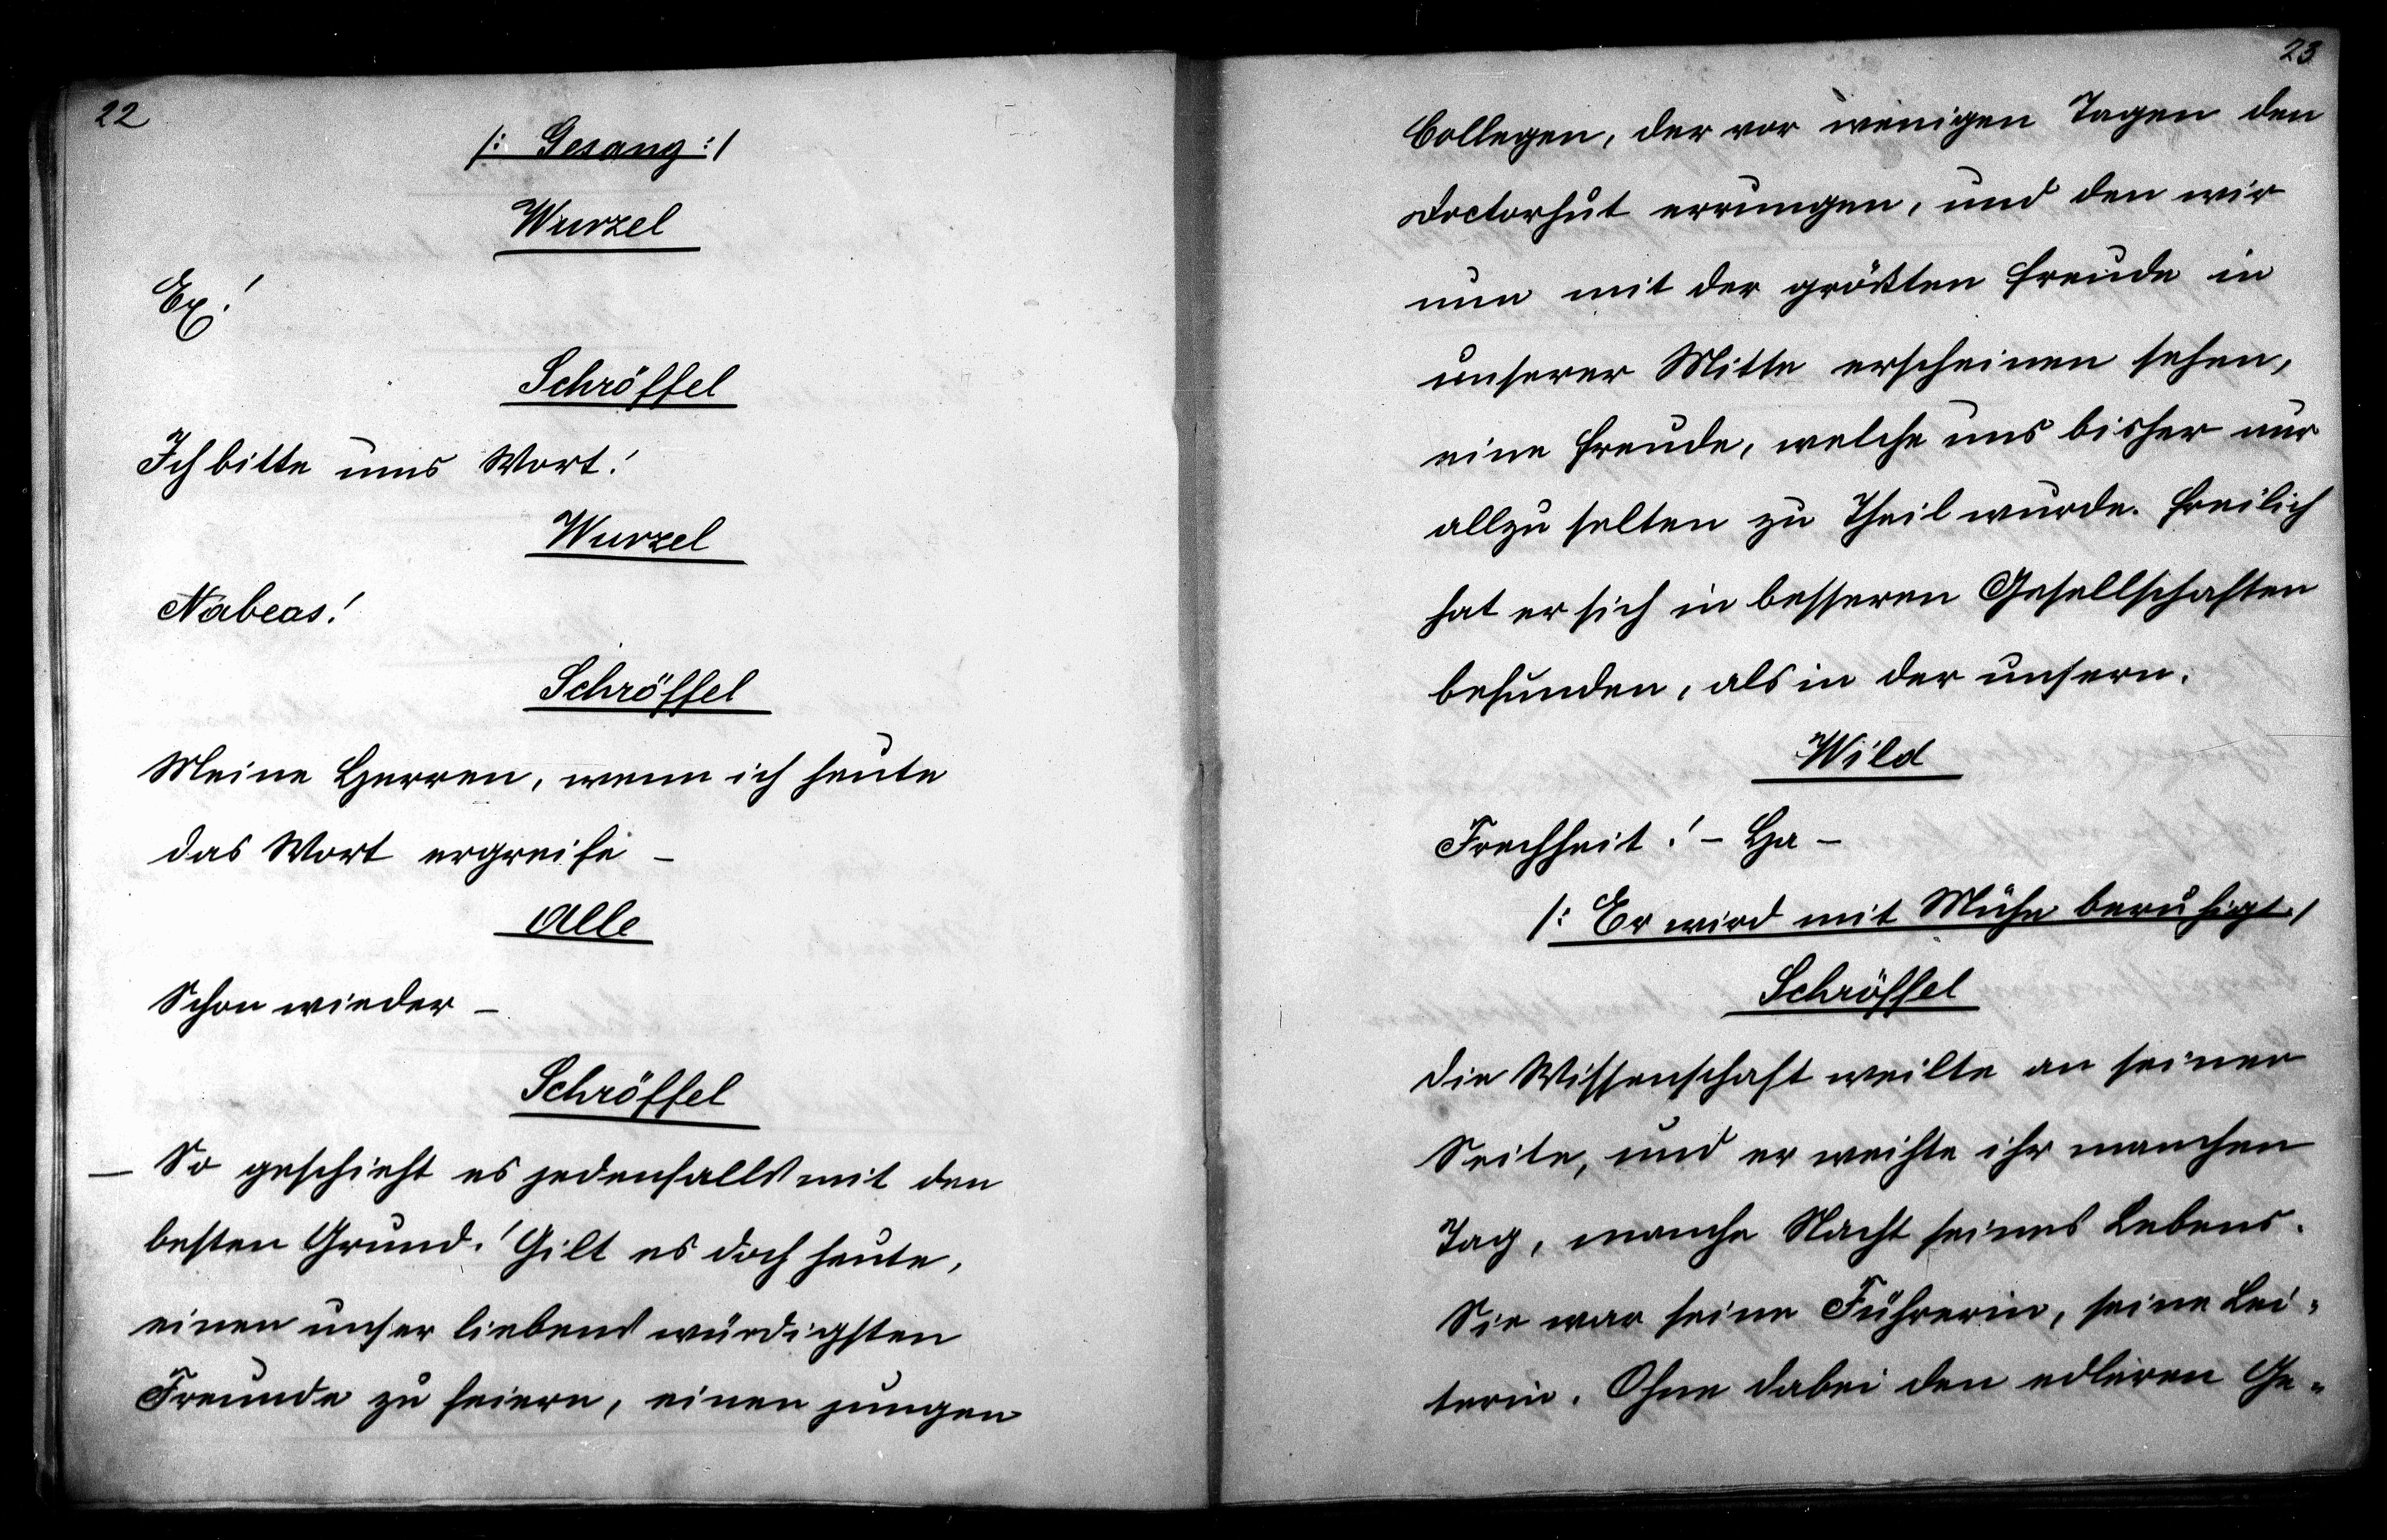 22
/: Gesang :/
Wurzel
Ex!
Schröffel
Ich bitte ums Wort!
Wurzel
Habeas!
Schröffel
Meine Herren, wenn ich heute
das Wort ergreife –
Alle
Schon wieder –
Schröffel
– So geschieht es jedenfalls mit den
besten Grund! Gilt es doch heute,
einen unser liebenswürdigsten
Freunde zu feiern, einen jungen
23
Collegen, der vor wenigen Tagen den
Doctorhut errungen, und den wir
nun mit der größten Freude in
unserer Mitte erscheinen sehen,
eine Freude, welche uns bisher nur
allzu selten zu Theil wurde. Freilich
hat er sich in besseren Gesellschaften
befunden, als in der unsern.
Wild
Frechheit! – Ha –
/: Er wird mit Mühe beruhigt :/
Schröffel
Die Wissenschaft weilte an seiner
Seite, und er weihte ihr manchen
Tag, manche Nacht seines Lebens.
Sie war seine Führerin, seine Lei=
terin. Ohne dabei den edleren Ge=